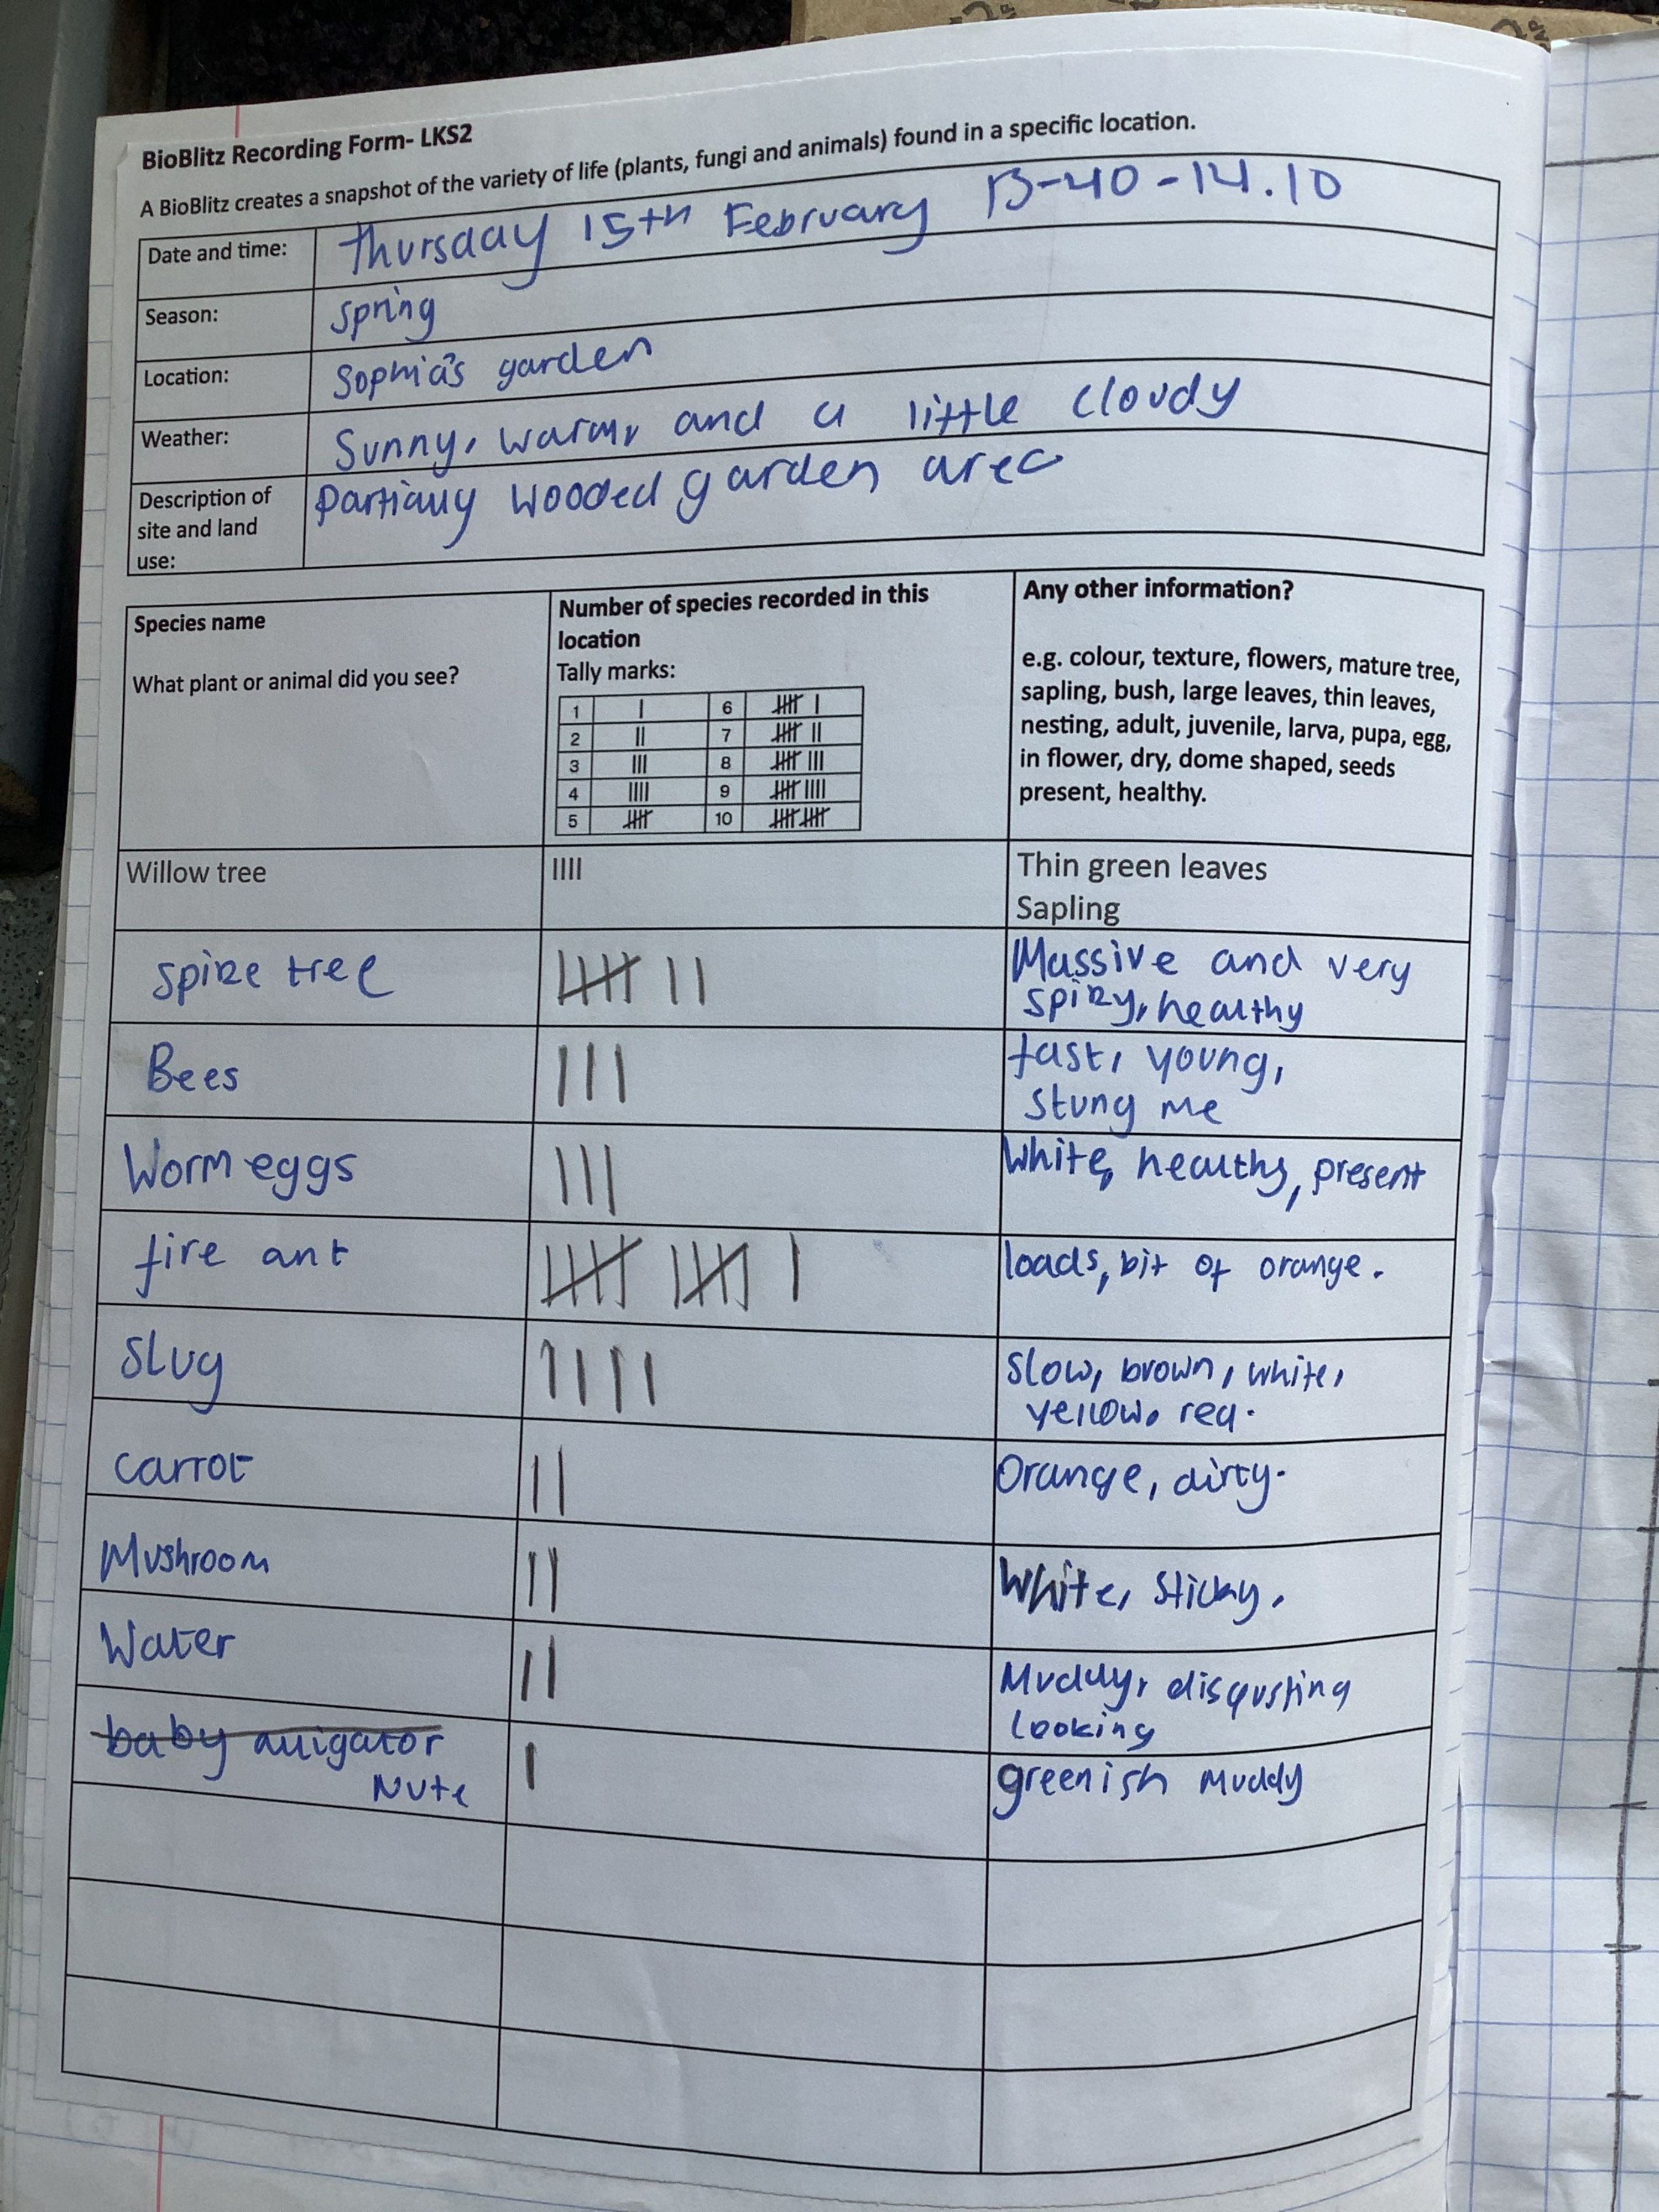 BioBlitz Recording Form- LKS2
A BioBlitz creates a snapshot of the variety of life (plants, fungi and animals) found in a specific location.
Date and time: Thursday 15th February 13-40-14.10
Season: Spring
Location: Sophia's garden
Weather: Sunny, warm, and a little cloudy
Description of site and land use: Partially wooded garden area
Species name
What plant or animal did you see?
Number of species recorded in this
location
Tally marks:
1 | 6 |||| |
2 || 7 |||| ||
3 ||| 8 |||| |||
4 |||| 9 |||| ||||
5 |||| 10 |||| ||||
Any other information?
e.g. colour, texture, flowers, mature tree,
sapling, bush, large leaves, thin leaves,
nesting, adult, juvenile, larva, pupa, egg,
in flower, dry, dome shaped, seeds
present, healthy.
Willow tree |||| Thin green leaves
Sapling
Spike tree |||| || Massive and very
spiky, healthy
Bees ||| fast, young,
stung me
Worm eggs ||| White, healthy, present
fire ant |||| |||| | loads, bit of orange.
Slug |||| Slow, brown, white,
yellow, red.
Carrot || Orange, dirty.
Mushroom || White, Sticky.
Water || Muddy, disgusting
looking
baby alligator
Nute | greenish Muddy